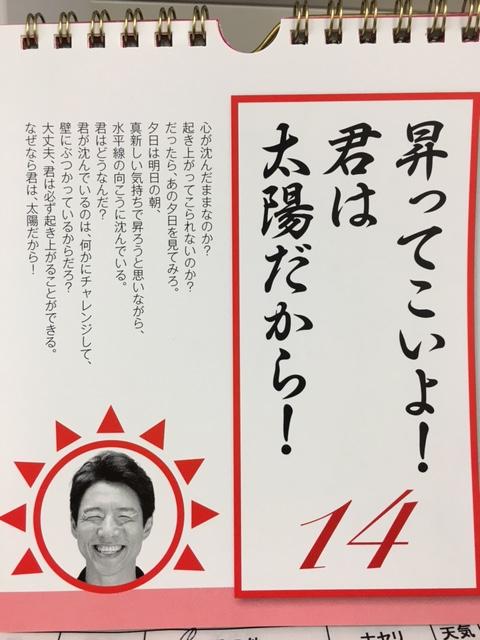 昇ってこいよ！
君は
太陽だから！
14
心が沈んだままなのか？
起き上がってこられないのか？
だったら、あの夕日を見てみろ。
夕日は明日の朝、
真新しい気持ちで昇ろうと思いながら、
水平線の向こうに沈んでいる。
君はどうなんだ？
君が沈んでいるのは、何かにチャレンジして、
壁にぶつかっているからだろ？
大丈夫、君は必ず起き上がることができる。
なぜなら君は、太陽だから！
天気